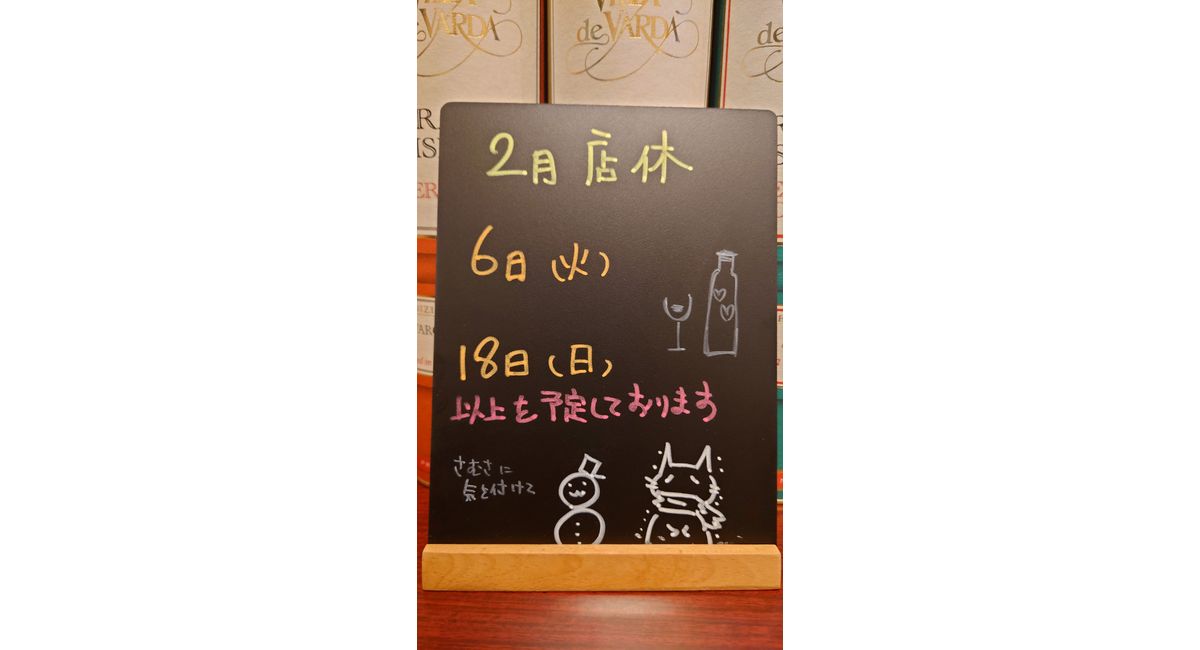 de VARDA
de VARDA
de
2月 店休
6日 (火)
18日 (日)
以上を予定しております
さむさに
気を付けて